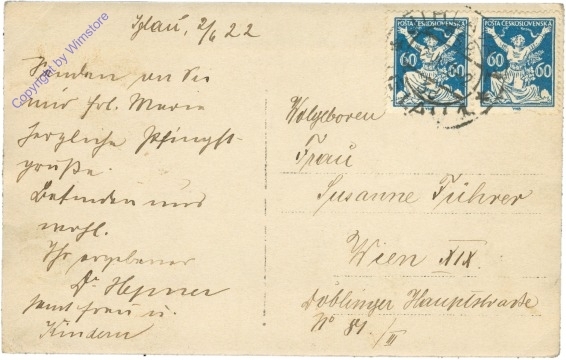 Iglau, 2/6 22
Senden an Sie
und frl. Marie
herzliche Pfingst-
grüße.
Befinden uns
wohl.
Ihr ergebener
Dr. Hepner
samt frau u.
Kindern
Copyright by Wimstore
POŠTA ČESKOSLOVENSKÁ
60 60
POŠTA ČESKOSLOVENSKÁ
60 60
Wolgeboren
Frau
Susanne Führer
Wien XIX.
Döblinger Hauptstrasse
No 81./III